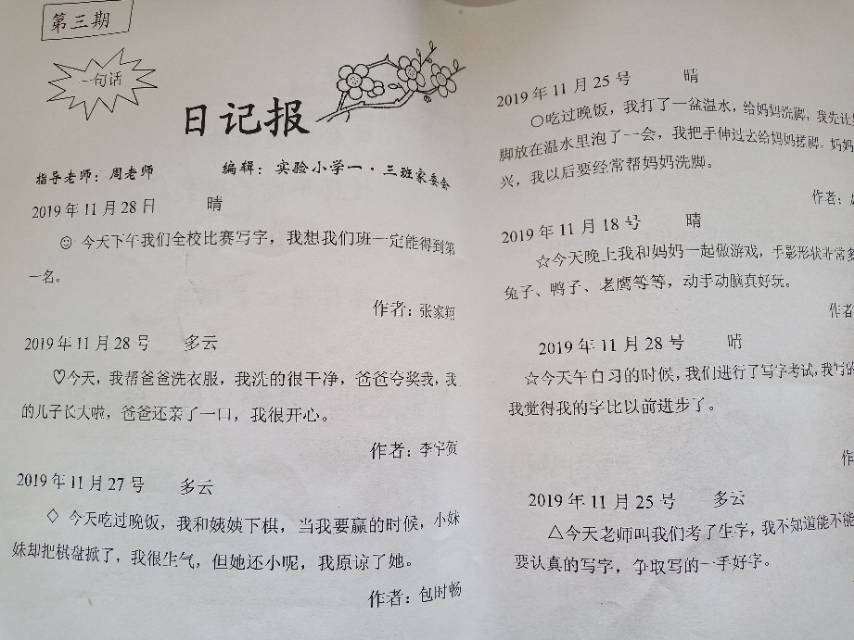 第三期
一句话
日记报
指导老师：周老师 编辑：实验小学一·三班家委会
2019年11月28日 晴
☺ 今天下午我们全校比赛写字，我想我们班一定能得到第
一名。
作者：张家翔
2019年11月28号 多云
♡今天，我帮爸爸洗衣服，我洗的很干净，爸爸夸奖我，我
的儿子长大啦，爸爸还亲了一口，我很开心。
作者：李宇贺
2019年11月27号 多云
◇ 今天吃过晚饭，我和姨姨下棋，当我要赢的时候，小妹
妹却把棋盘掀了，我很生气，但她还小呢，我原谅了她。
作者：包时畅
2019年11月25号 晴
○吃过晚饭，我打了一盆温水，给妈妈洗脚，我先让
脚放在温水里泡了一会，我把手伸过去给妈妈搓脚。妈妈
兴，我以后要经常帮妈妈洗脚。
作者：
2019年11月18号 晴
☆今天晚上我和妈妈一起做游戏，手影形状非常多
兔子、鸭子、老鹰等等，动手动脑真好玩。
作者
2019年11月28号 晴
☆今天午自习的时候，我们进行了写字考试，我写的
我觉得我的字比以前进步了。
作
2019年11月25号 多云
△今天老师叫我们考了生字，我不知道能不能
要认真的写字，争取写的一手好字。